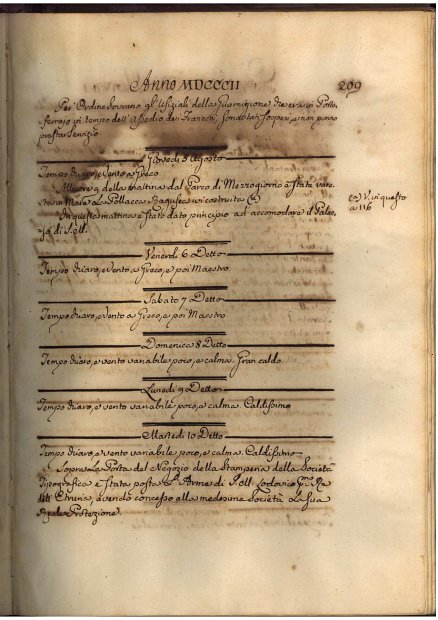 Anno MDCCCII
209
Per Ordine Sovrano gl'Ufiziali della Guarnigione che era in Porto
ferrajo in tempo dell'Assedio dei Francesi, sono e non
prestar servizio
Giovedi 5 Agosto
Tempo chiaro, e Vento a Greco
Alle ore 9 della mattina dal Parco di Mezzogiorno è stata vara
ta in Mare La Pollacca Ragusea ivi costruita (a)
(a) V. in questo
a 116
In questa mattina è stato dato principio ad accomodare il Palaz
zo di S. M.
Venerdi 6 Detto
Tempo chiaro, e Vento a Greco, e poi Maestro
Sabato 7 Detto
Tempo chiaro, e Vento a Greco, e poi Maestro
Domenica 8 Detto
Tempo chiaro, e vento variabile poco, e calma. Gran caldo
Lunedi 9 Detto
Tempo chiaro, e vento variabile poco, e calma. Caldissimo
Martedi 10 Detto
Tempo chiaro, e vento variabile poco, e calma. Caldissimo
Sopra La Porta del Negozio della Stamperia della Società
Tipografica è stata posta L'Arme di S. M. Lodovico p.mo Re
dell'Etruria, avendo concesso alla medesima Società La sua
Reale Protezione.